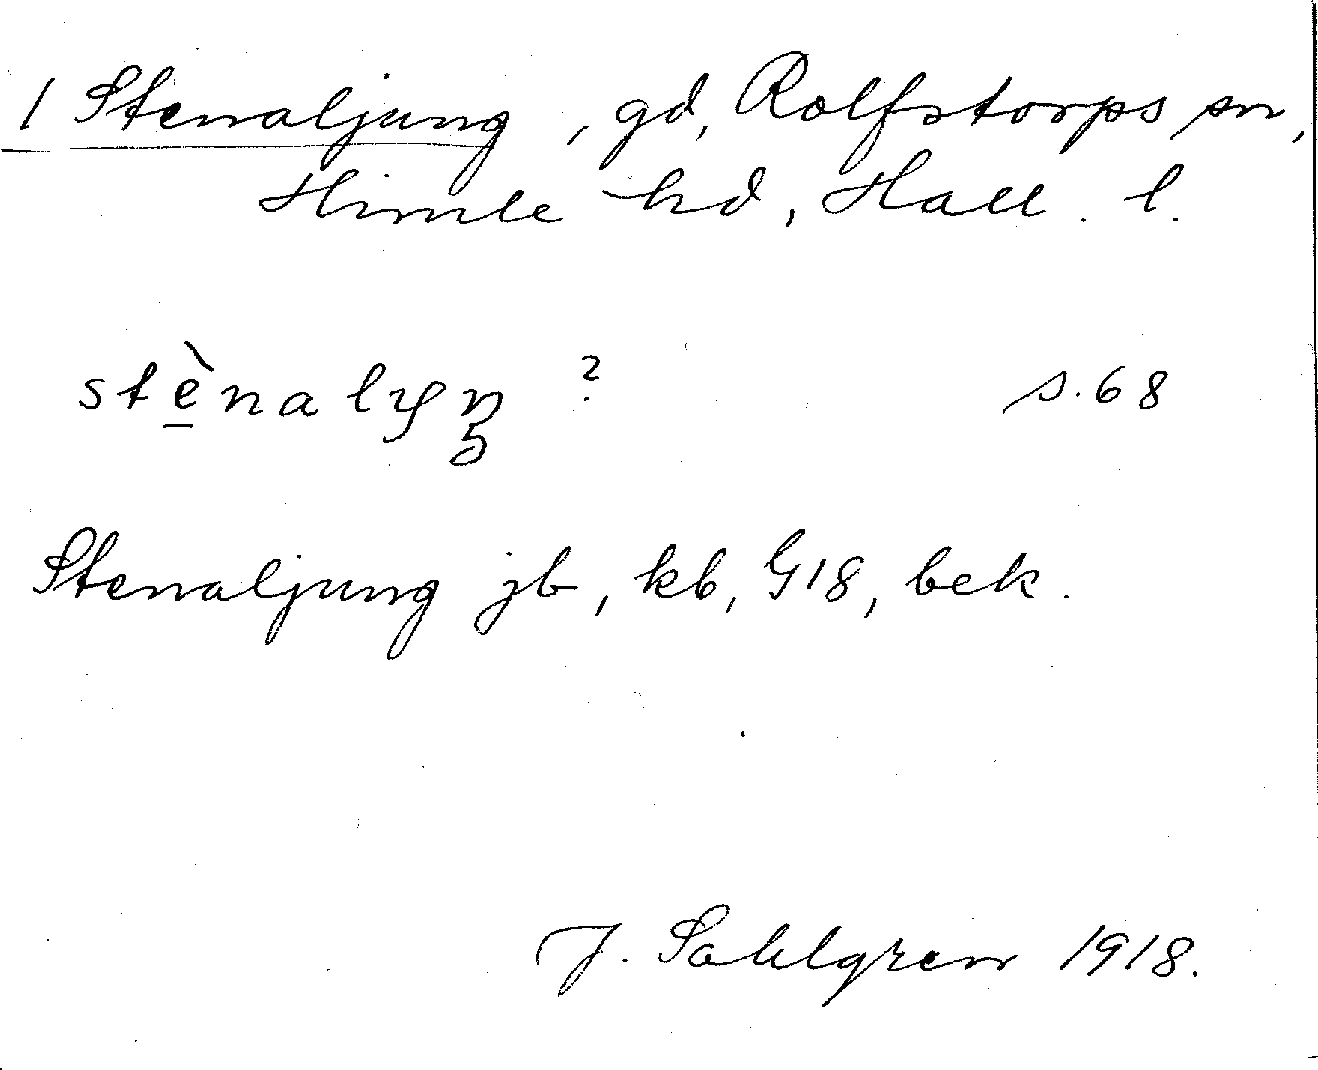 1 Stenaljung, gd, Rolfstorps sn,
Himle hd, Hall. l.
s. 68
Stenaljung jb, kb, G18, bek.
J. Sahlgren 1918.